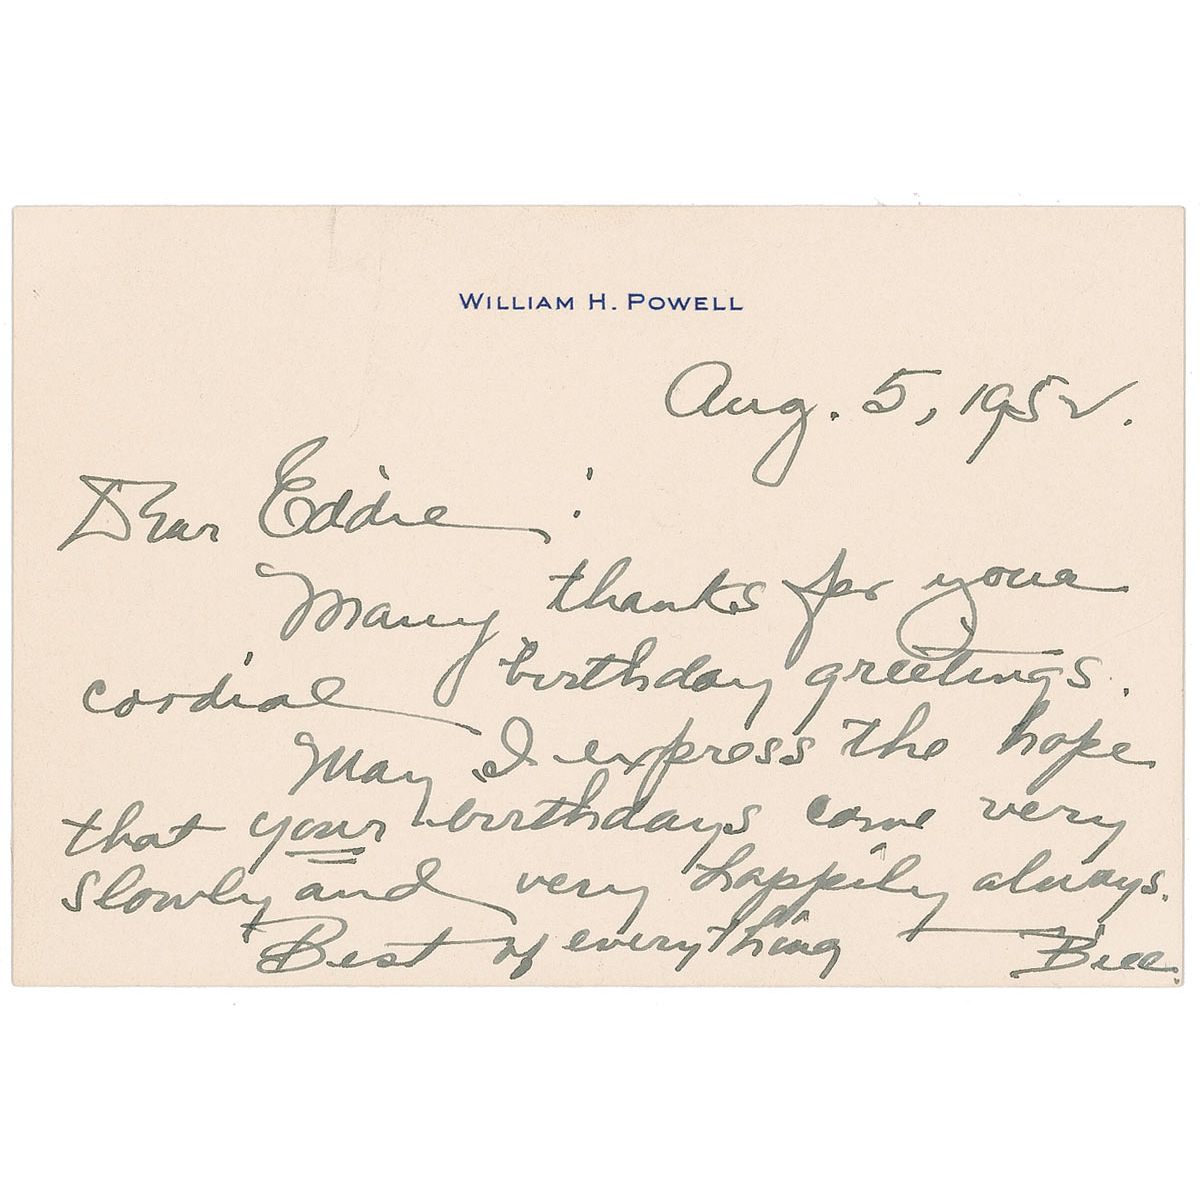 WILLIAM H. POWELL
Aug. 5, 1952.
Dear Eddie:
Many thanks for your
cordial birthday greetings.
May I express the hope
that your birthdays come very
slowly and very happily always.
Best of everything Bill.